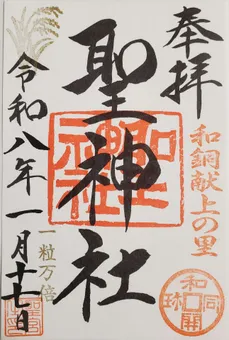 奉拝
和銅献上の里
聖神社
聖神社
和同開珎
令和八年一月十七日
一粒万倍